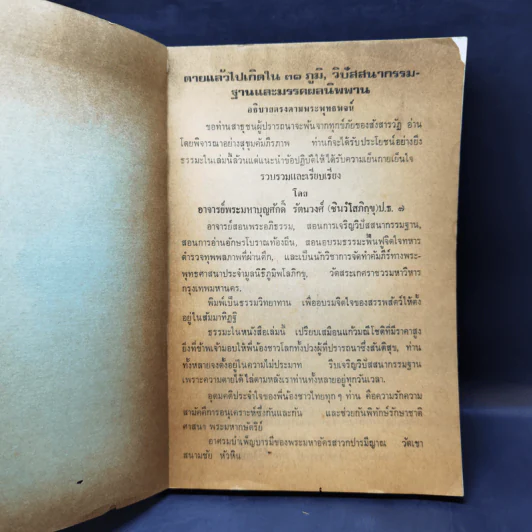 ตายแล้วไปเกิดใน ๓๑ ภูมิ, วิปัสสนากรรม-
ฐานและมรรคผลนิพพาน
อธิบายตรงตามพระพุทธพจน์
ขอท่านสาธุชนผู้ปรารถนาจะพ้นจากทุกข์ภัยของสังสารวัฏ อ่าน
โดยพิจารณาอย่างสุขุมคัมภีรภาพ ท่านก็จะได้รับประโยชน์อย่างยิ่ง
ธรรมะในเล่มนี้ล้วนแต่แนะนำข้อปฏิบัติให้ได้รับความเย็นกายเย็นใจ
รวบรวมและเรียบเรียง
โดย
อาจารย์พระมหาบุญศักดิ์ รัตนวงศ์ (ชินวํโสภิกขุ) ป.ธ. ๗
อาจารย์สอนพระอภิธรรม, สอนการเจริญวิปัสสนากรรมฐาน,
สอนการอ่านอักษรโบราณท้องถิ่น, สอนอบรมธรรมะฟื้นฟูจิตใจทหาร
ตำรวจทุพพลภาพที่ผ่านศึก, และเป็นนักวิชาการจัดทำคัมภีร์ทางพระ-
พุทธศาสนาประจำมูลนิธิภูมิพโลภิกขุ, วัดสระเกศราชวรมหาวิหาร
กรุงเทพมหานคร.
พิมพ์เป็นธรรมวิทยาทาน เพื่ออบรมจิตใจของสรรพสัตว์ให้ตั้ง
อยู่ในสัมมาทิฏฐิ
ธรรมะในหนังสือเล่มนี้ เปรียบเสมือนแก้วมณีโชติที่มีราคาสูง
ยิ่งที่ข้าพเจ้ามอบให้พี่น้องชาวโลกทั้งปวงผู้ที่ปรารถนาซึ่งสันติสุข, ท่าน
ทั้งหลายจงตั้งอยู่ในความไม่ประมาท รีบเจริญวิปัสสนากรรมฐาน
เพราะความตายได้ไล่ตามหลังเราท่านทั้งหลายอยู่ทุกวันเวลา.
อุดมคติประจำใจของพี่น้องชาวไทยทุก ๆ ท่าน คือความรักความ
สามัคคีการอนุเคราะห์ซึ่งกันและกัน และช่วยกันพิทักษ์รักษาชาติ
ศาสนา พระมหากษัตริย์
อาศรมบำเพ็ญบารมีของพระมหาอัครสาวกปารมีญาณ วัดเขา
สนามชัย หัวหิน